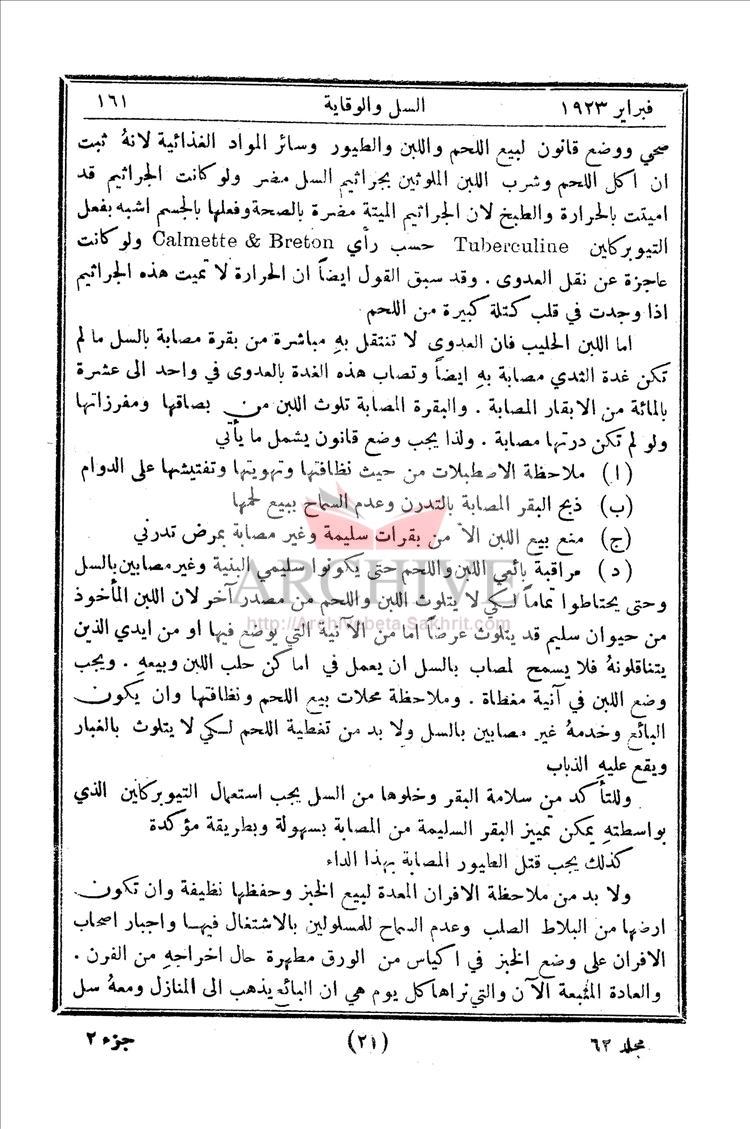 فبراير ١٩٢٣ السل والوقاية ١٦١
صحي ووضع قانون لبيع اللحم واللبن والطيور وسائر المواد الغذائية لانهُ ثبت
ان اكل اللحم وشرب اللبن الملوثين بجراثيم السل مضر ولو كانت الجراثيم قد
اميتت بالحرارة والطبخ لان الجراثيم الميتة مضرة بالصحة وفعلها بالجسم اشبه بفعل
التيوبركلين Tuberculine حسب رأي Calmette & Breton ولو كانت
عاجزة عن نقل العدوى . وقد سبق القول ايضاً ان الحرارة لا تميت هذه الجراثيم
اذا وجدت في قلب كتلة كبيرة من اللحم
اما اللبن الحليب فان العدوى لا تنتقل بهِ مباشرة من بقرة مصابة بالسل ما لم
تكن غدة الثدي مصابة بهِ ايضاً وتصاب هذه الغدة بالعدوى في واحد الى عشرة
بالمائة من الابقار المصابة . والبقرة المصابة تلوث اللبن من بصاقها ومفرزاتها
ولو لم تكن درتها مصابة . ولذا يجب وضع قانون يشمل ما يأتي
(ا) ملاحظة الاصطبلات من حيث نظافتها وتهويتها وتفتيشها على الدوام
(ب) ذبح البقر المصابة بالتدرن وعدم السماح ببيع لحمها
(ج) منع بيع اللبن الاّ من بقرات سليمة وغير مصابة بمرض تدرني
(د) مراقبة بائعي اللبن واللحم حتى يكونوا سليمي البنية وغير مصابين بالسل
وحتى يحتاطوا تماماً لكي لا يتلوث اللبن واللحم من مصدر آخر لان اللبن المأخوذ
من حيوان سليم قد يتلوث عرضاً اما من الآنية التي يوضع فيها او من ايدي الذين
يتناقلونهُ فلا يسمح لمصاب بالسل ان يعمل في اماكن حلب اللبن وبيعهِ . ويجب
وضع اللبن في آنية مغطاة . وملاحظة محلات بيع اللحم ونظافتها وان يكون
البائع وخدمهُ غير مصابين بالسل ولا بد من تغطية اللحم لكي لا يتلوث بالغبار
ويقع عليهِ الذباب
وللتأكد من سلامة البقر وخلوها من السل يجب استعمال التيوبركلين الذي
بواسطتهِ يمكن تمييز البقر السليمة من المصابة بسهولة وبطريقة مؤكدة
كذلك يجب قتل الطيور المصابة بهذا الداء
ولا بد من ملاحظة الافران المعدة لبيع الخبز وحفظها نظيفة وان تكون
ارضها من البلاط الصلب وعدم السماح للمسلولين بالاشتغال فيها واجبار اصحاب
الافران على وضع الخبز في اكياس من الورق مطهرة حال اخراجهِ من الفرن .
والعادة المتبعة الآن والتي نراها كل يوم هي ان البائع يذهب الى المنازل ومعهُ سل
مجلد ٦٢ (٢١) جزء ٢
ARCHIVE
http://Archivebeta.Sakhrit.com